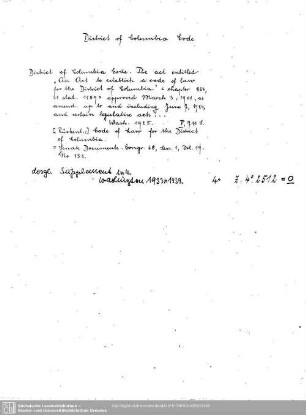 District of Columbia Code
District of Columbia Code. The act entitled
"An Act to establish a code of law
for the District of Columbia" <chapter 854,
31 stat. 1189> approved March 3, 1901, as
amend. up to and including June 7, 1924,
and certain legislative acts...
Wash. 1925.
Code of Law for the District
of Columbia.
= Senate Documents. Congr. 68, Sess. 1, Vol. 19.
No 132.
dergl. Supplement
Washington 1937. 1939. 4° Z. 4° 2512 = 0